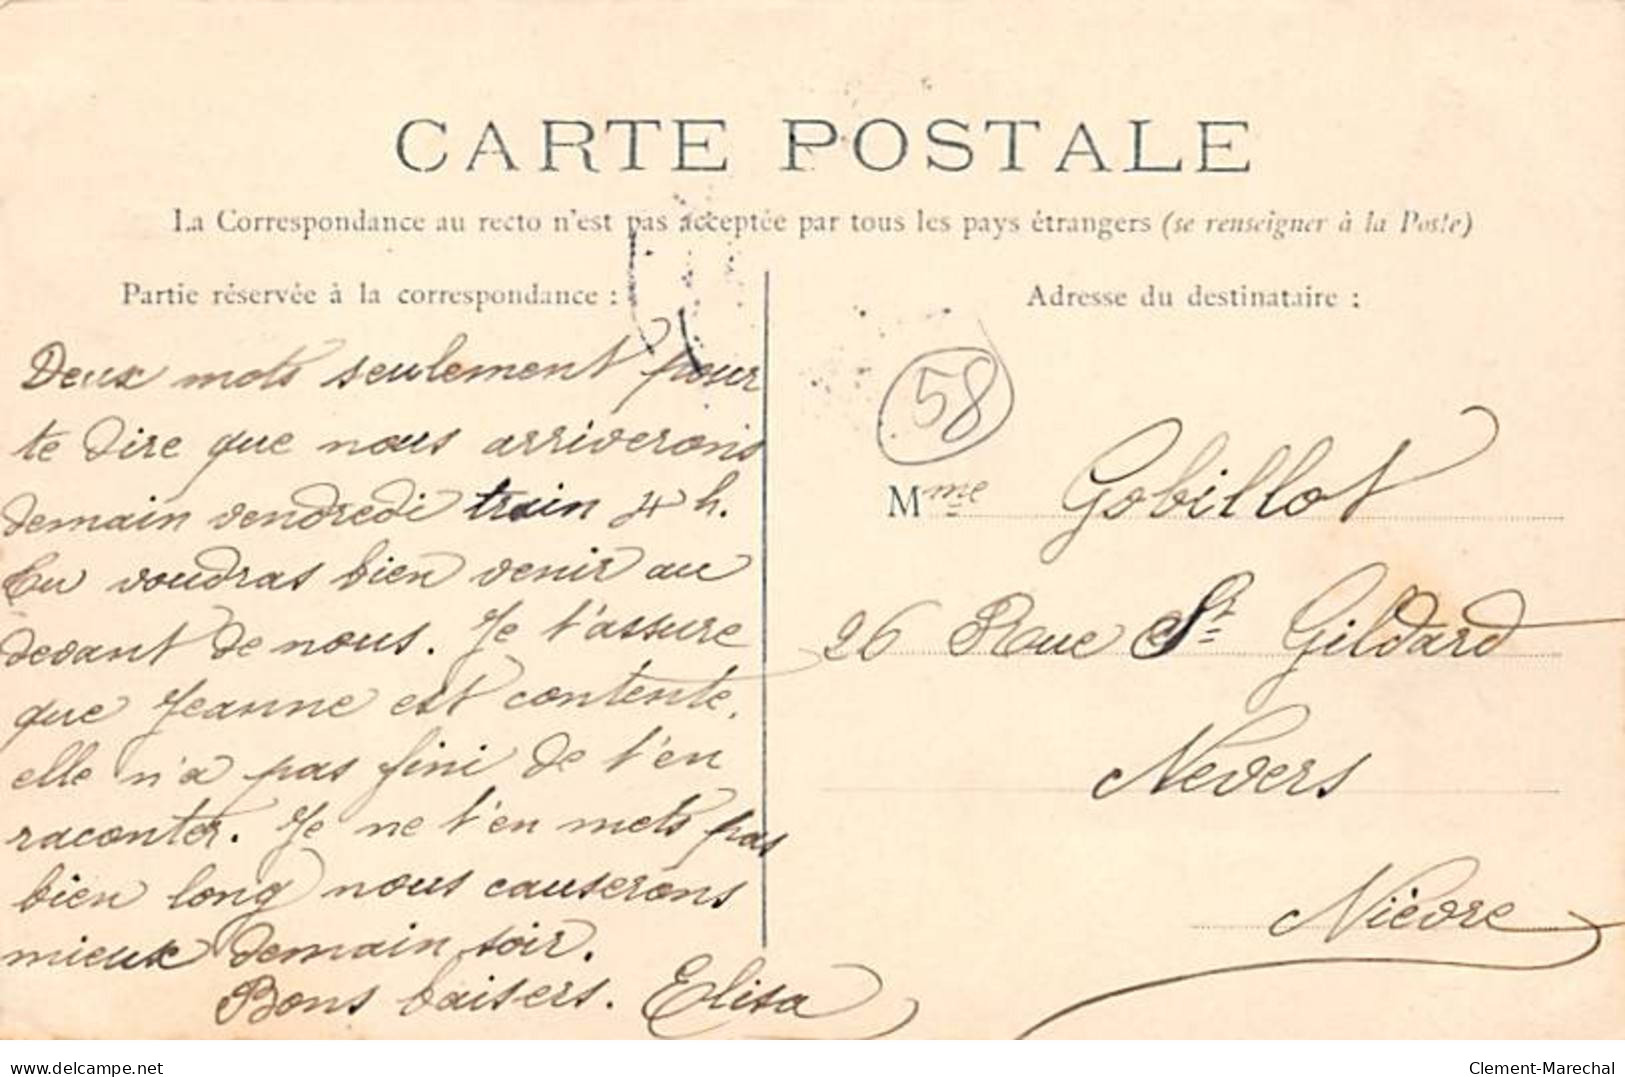 CARTE POSTALE
La Correspondance au recto n'est pas acceptée par tous les pays étrangers (se renseigner à la Poste)
Partie réservée à la correspondance :
Deux mots seulement pour
te dire que nous arriverons
demain vendredi train 4 h.
Tu voudras bien venir au
devant de nous. Je t'assure
que Jeanne est contente.
elle n'a pas fini de t'en
raconter. Je ne t'en mets pas
bien long nous causerons
mieux demain soir.
Bons baisers. Elisa
Adresse du destinataire :
58
Mme Gobillot
26 Rue St Gildard
Nevers
Nièvre
www.delcampe.net
Clement-Marechal